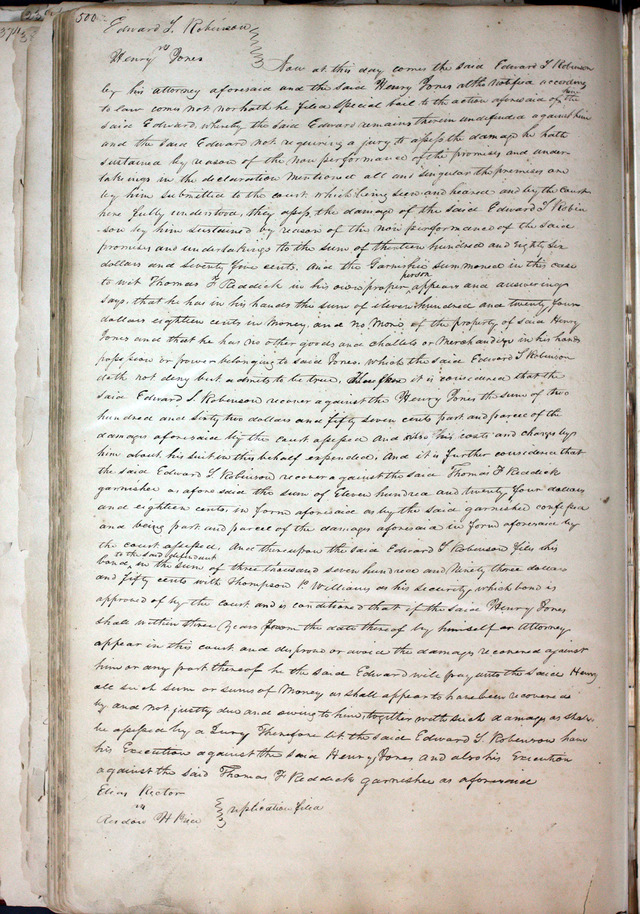 500
Edward T. Robinson
vs
Henry Jones
Now at this day comes the said Edward T Robinson
by his attorney aforesaid and the said Henry Jones altho notified according
to law comes not nor hath he filed special bail to the action aforesaid of the
said Edward whereby the said Edward remains therein undefended against him
and the said Edward not requiring a jury to assess the damages he hath
sustained by reason of the non performance of the promises and under-
takings in the declaration mentioned all and singular the premises are
by him submitted to the court which being seen and heard and by the court
here fully understood, they assess the damages of the said Edward T Robin
son by him sustained by reason of the non performance of the said
promises and undertakings to the sum of thirteen hundred and Eighty Six
dollars and seventy five cents. And the Garnishee summoned in this case
to wit Thomas F Reddick in his own proper person appears and answering
says, that he has in his hands the sum of eleven hundred and twenty four
dollars eighteen cents in money, and no more of the property of said Henry
Jones and that he has no other goods and chattels or Merchandize in his hands
possession or power belonging to said Jones. which the said Edward T Robinson
doth not deny but admits to be true, Therefore it is considered that the
said Edward T. Robinson recover against the Henry Jones the sum of two
hundred and sixty two dollars and fifty seven cents part and parcel of the
damages aforesaid by the court assessed and also his costs and charges by
him about his suit in this behalf expended. And it is further considered that
the said Edward T Robinson recover against the said Thomas F Reddick
garnishee as aforesaid the sum of Eleven hundred and twenty four dollars
and eighteen cents in form aforesaid as by the said garnishee confessed
and being part and parcel of the damages aforesaid in form aforesaid by
the court assessed, And thereupon the said Edward T Robinson files his
bond to the said defendant in the sum of three thousand seven hundred and Ninety three dollars
and fifty cents with Thompson P. Williams as his security, which bond is
approved of by the court and is conditioned that if the said Henry Jones
shall within three years from the date thereof by himself or Attorney
appear in this court and disprove or avoid the damages recovered against
him or any part thereof he the said Edward will pay unto the said Henry
all such sum or sums of Money as shall appear to have been recovered
by and not justly due and owing to him, together with such damages as shall
be assessed by a Jury Therefore let the said Edward T. Robinson have
his Execution against the said Henry Jones and also his Execution
against the said Thomas F Reddick garnishee as aforesaid
Elias Rector
vs
H Price
replication filed